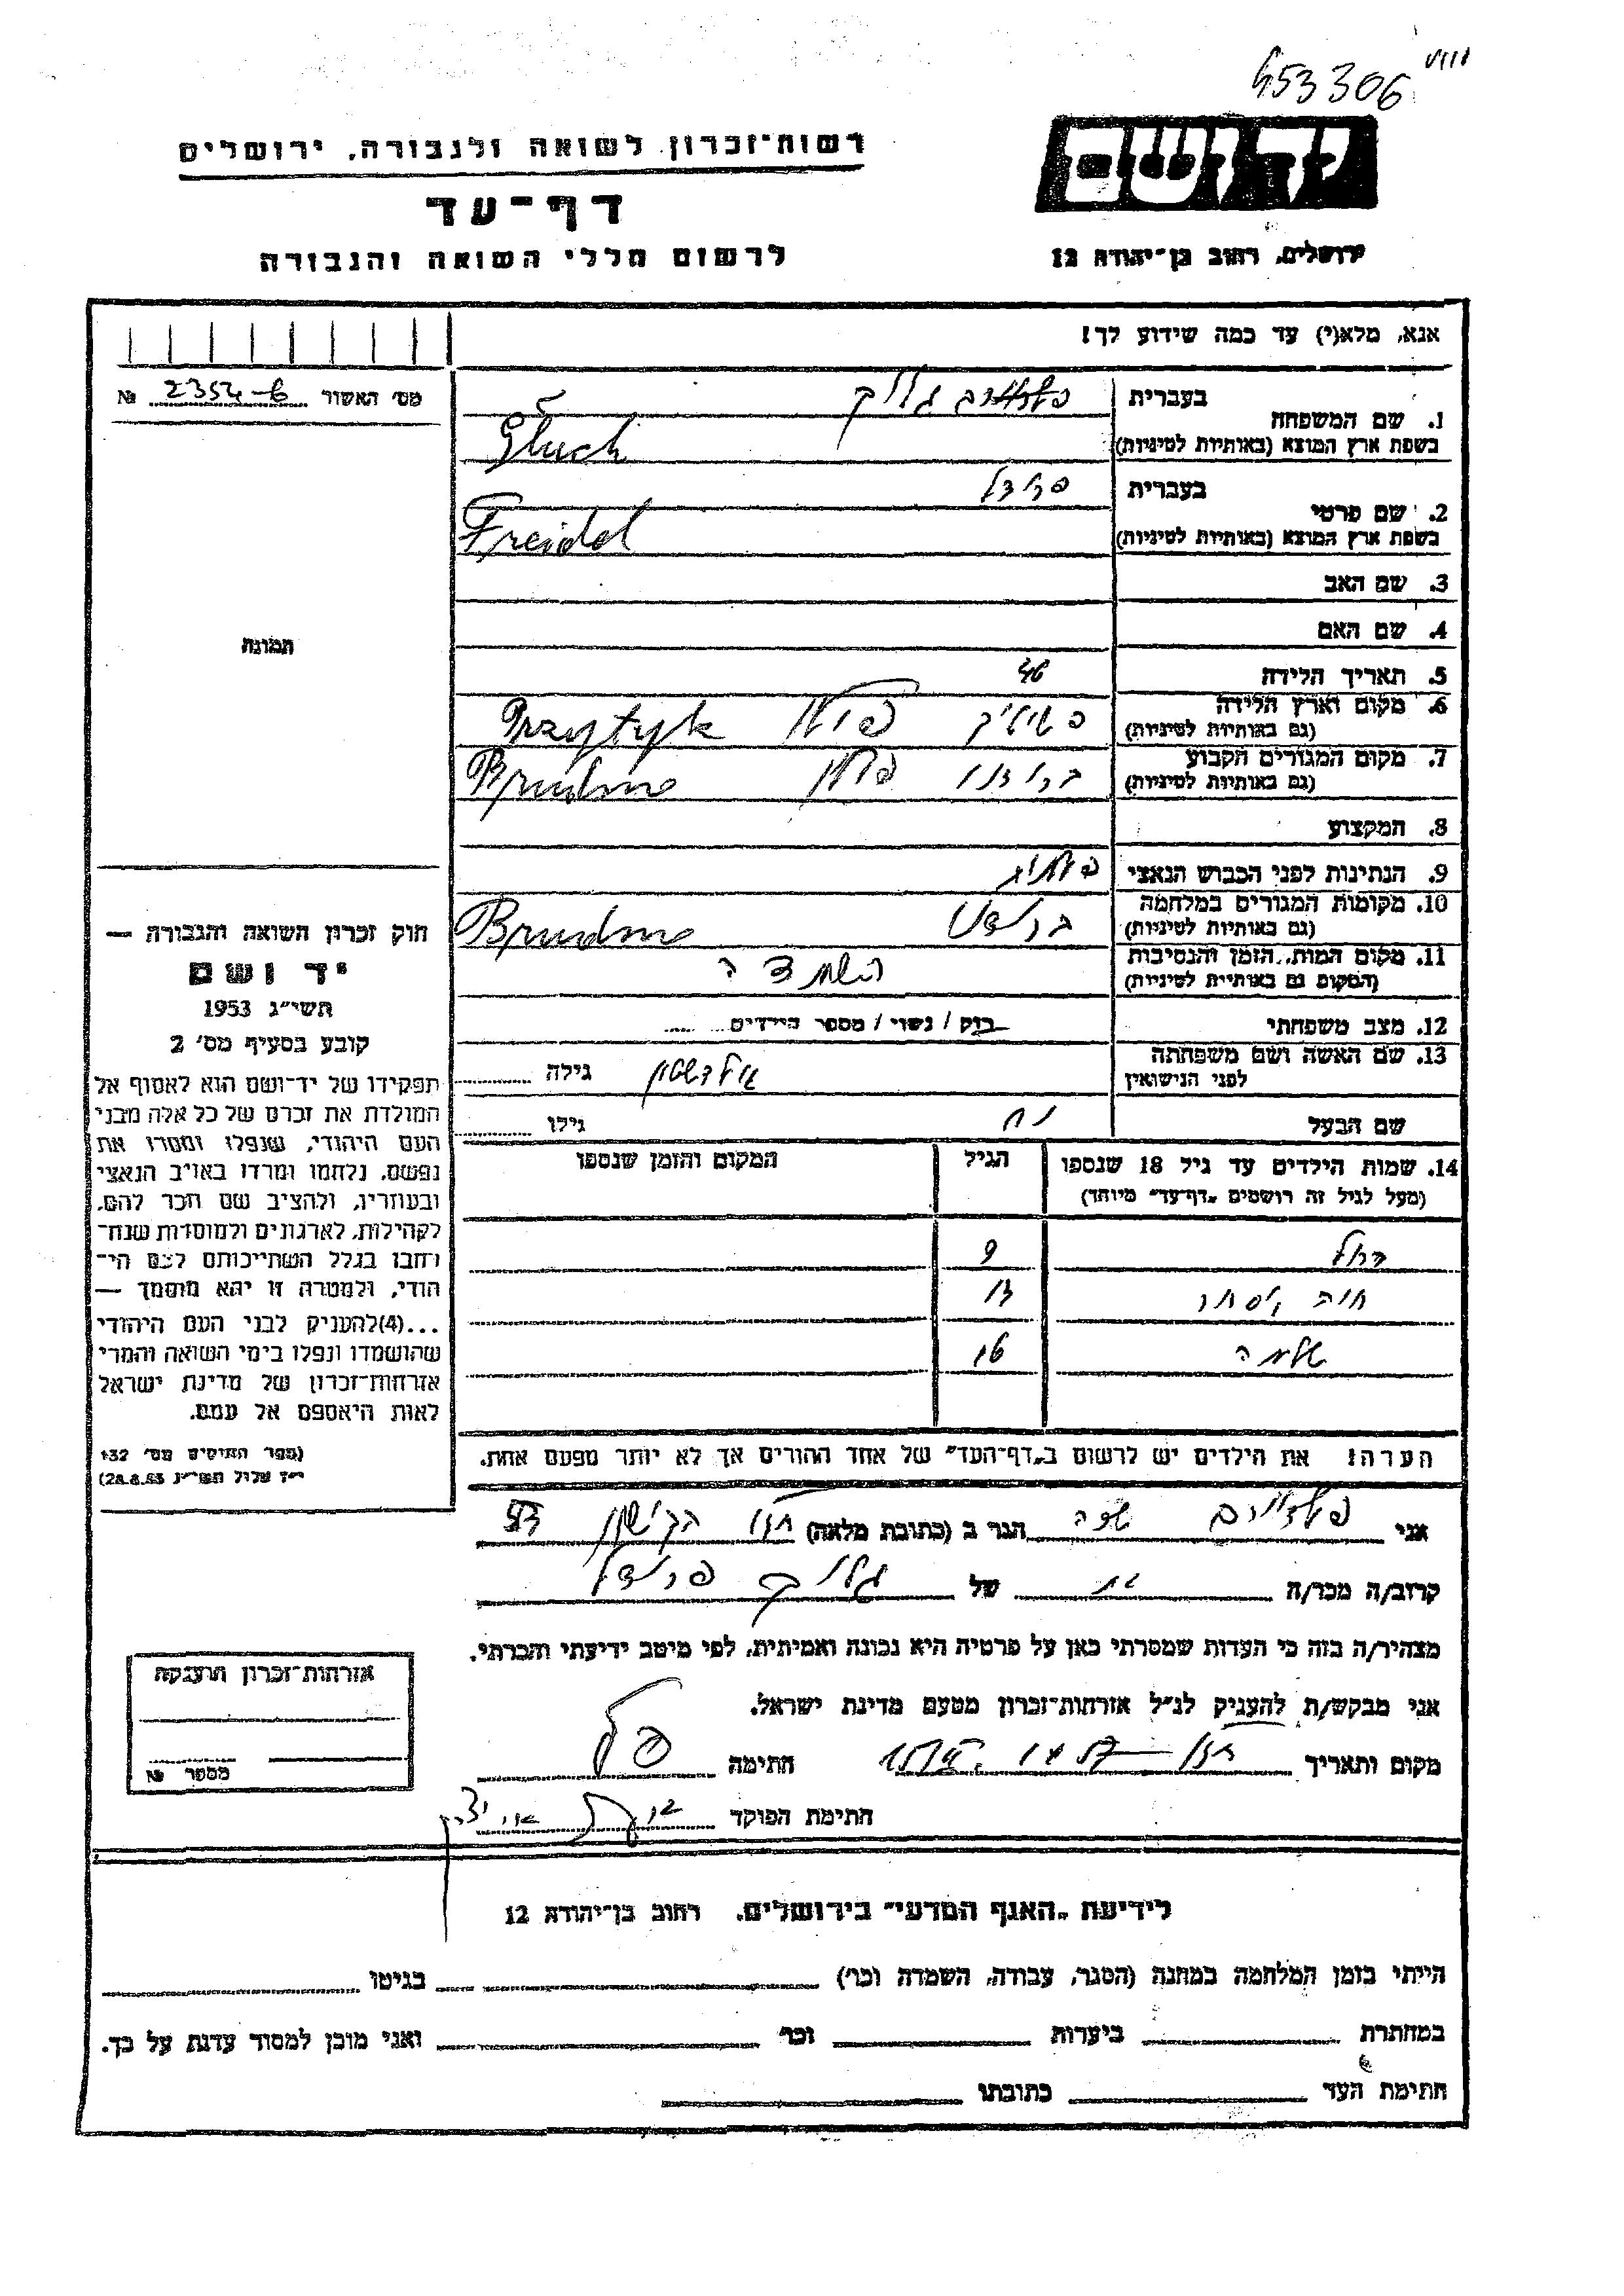 453306
רשות־זכרון לשואה ולגבורה, ירושלים
יד ושם
דף־עד
לרשום חללי השואה והגבורה
ירושלים, רחוב בן־יהודה 12
אנא, מלא(י) עד כמה שידוע לך!
מס' האשור 2354-6 №
1. שם המשפחה
בעברית גליק
בשפת ארץ המוצא (באותיות לטיניות) Gluck
2. שם פרטי
בעברית פרידל
בשפת ארץ המוצא (באותיות לטיניות) Freidel
3. שם האב
4. שם האם
תמונה
5. תאריך הלידה 46
6. מקום וארץ הלידה פשיטיק פולין Przytyk
(גם באותיות לטיניות)
7. מקום המגורים הקבוע ברודנו פולין Brudno
(גם באותיות לטיניות)
8. המקצוע
9. הנתינות לפני הכבוש הנאצי
10. מקומות המגורים במלחמה Brudno
(גם באותיות לטיניות)
11. מקום המות, הזמן והנסיבות השמדה
(המקום גם באותיות לטיניות)
12. מצב משפחתי רווק / נשוי / מספר הילדים
13. שם האשה ושם משפחתה גולדשטיין גילה
לפני הנישואין
שם הבעל נח גילו
14. שמות הילדים עד גיל 18 שנספו הגיל המקום והזמן שנספו
(מעל לגיל זה רושמים „דף־עד" מיוחד)
רחל 9
חיה אסתר 13
שלמה 16
הערה! את הילדים יש לרשום ב„דף־העד" של אחד ההורים אך לא יותר מפעם אחת.
חוק זכרון השואה והגבורה —
יד ושם
תשי"ג 1953
קובע בסעיף מס' 2
תפקידו של יד־ושם הוא לאסוף אל
המולדת את זכרם של כל אלה מבני
העם היהודי, שנפלו ומסרו את
נפשם, נלחמו ומרדו באויב הנאצי
ובעוזריו, ולהציב שם וזכר להם,
לקהילות, לארגונים ולמוסדות שנח־
רחבו בגלל השתייכותם לעם הי־
הודי, ולמטרה זו יהא מוסמך —
...(4) להעניק לבני העם היהודי
שהושמדו ונפלו בימי השואה והמרי
אזרחות־זכרון של מדינת ישראל
לאות היאספם אל עמם.
(ספר החוקים מס' 132
י"ז אלול תשי"ג 28.8.53)
אני שרה הגר ב (כתובת מלאה) חולון
קרוב/ה מכר/ה בת של גליק פרידל
מצהיר/ה בזה כי העדות שמסרתי כאן על פרטיה היא נכונה ואמיתית, לפי מיטב ידיעתי והכרתי.
אני מבקש/ת להעניק לנ"ל אזרחות־זכרון מטעם מדינת ישראל.
מקום ותאריך חולון חתימה
חתימת הפוקד
אזרחות־זכרון הוענקה
מספר №
לידיעת „האגף המדעי" בירושלים, רחוב בן־יהודה 12
הייתי בזמן המלחמה במחנה (הסגר, עבודה, השמדה וכו') בגיטו
במחתרת ביערות וכו' ואני מוכן למסור עדות על כך.
חתימת העד כתובתו